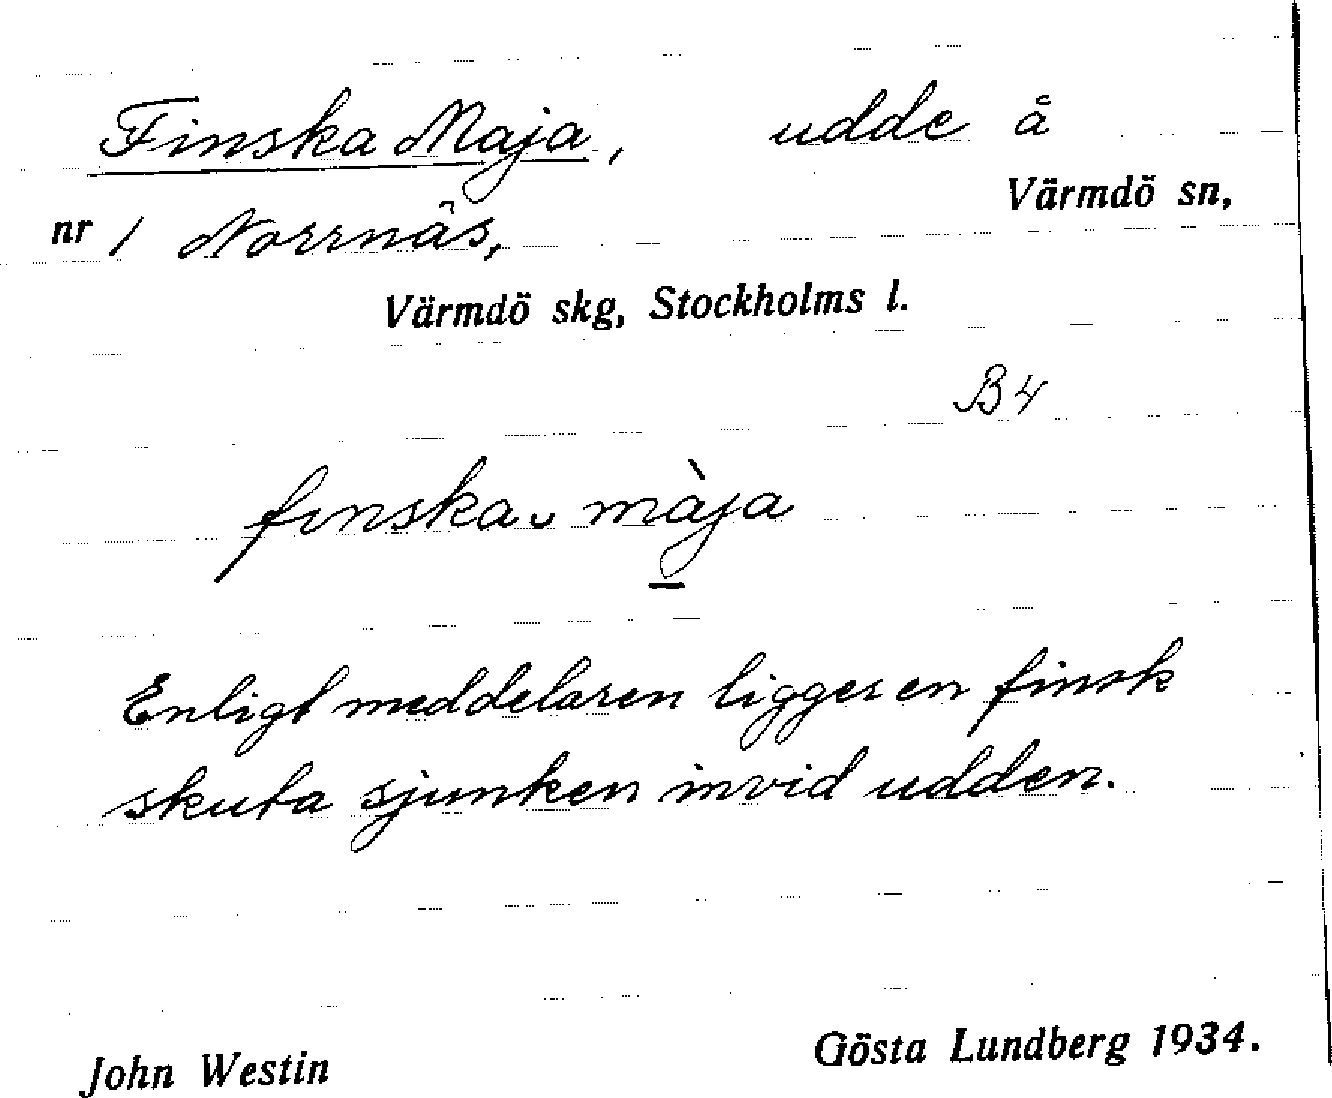 Finska Maja, udde å
Värmdö sn,
nr 1 Norrnäs,
Värmdö skg, Stockholms l.
B4
finska ᴗ màja
Enligt meddelaren ligger en finsk
skuta sjunken invid udden.
John Westin
Gösta Lundberg 1934.